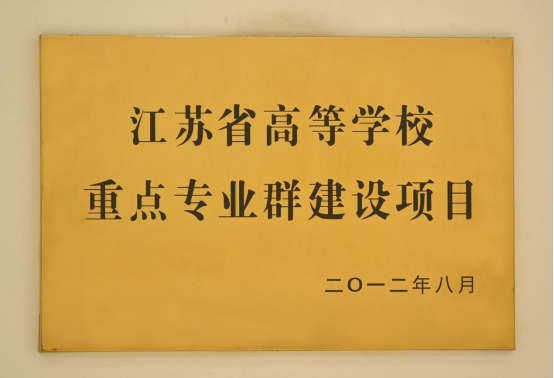 江苏省高等学校
重点专业群建设项目
二O一二年八月